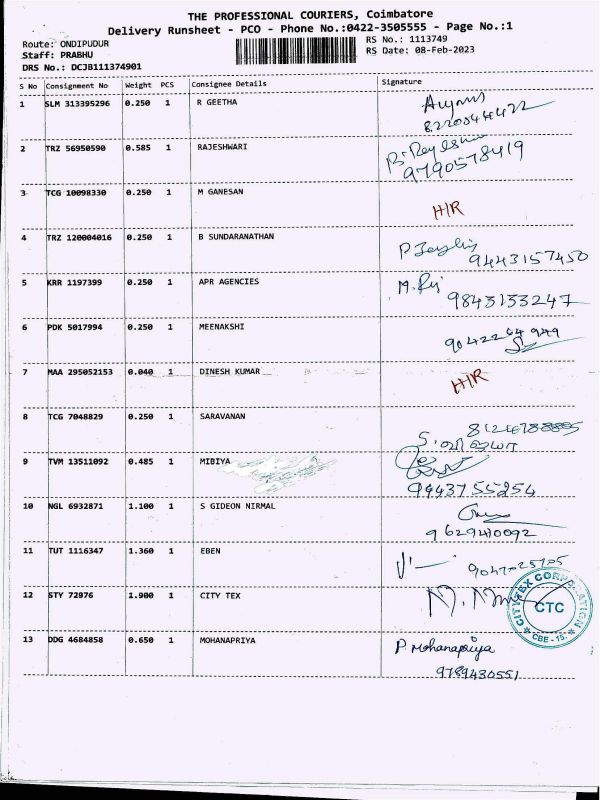 THE PROFESSIONAL COURIERS, Coimbatore
Delivery Runsheet - PCO - Phone No.:0422-3505555 - Page No.:1
Route: ONDIPUDUR
Staff: PRABHU
DRS No.: DCJB111374901
RS No.: 1113749
RS Date: 08-Feb-2023
S No Consignment No Weight PCS Consignee Details Signature
1 SLM 313395296 0.250 1 R GEETHA
8220544422
2 TRZ 56950590 0.585 1 RAJESHWARI
9790578419
3 TCG 10098330 0.250 1 M GANESAN H/R
4 TRZ 120004016 0.250 1 B SUNDARANATHAN
9443157450
5 KRR 1197399 0.250 1 APR AGENCIES
9843133247
6 PDK 5017994 0.250 1 MEENAKSHI
9042264949
7 MAA 295052153 0.040 1 DINESH KUMAR H/R
8 TCG 7048829 0.250 1 SARAVANAN
9 TVM 13511092 0.485 1 MIBIYA
9443755254
10 NGL 6932871 1.100 1 S GIDEON NIRMAL
9629410092
11 TUT 1116347 1.360 1 EBEN
12 STY 72976 1.900 1 CITY TEX
CITYTEX CORPORATION
CTC
CBE - 15.
13 DDG 4684858 0.650 1 MOHANAPRIYA P. Mohanapriya
9789430551